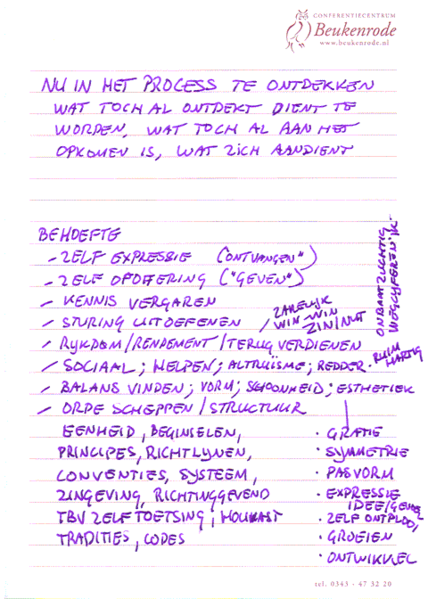 CONFERENTIECENTRUM
Beukenrode
www.beukenrode.nl
NU IN HET PROCESS TE ONTDEKKEN
WAT TOCH AL ONTDEKT DIENT TE
WORDEN, WAT TOCH AL AAN HET
OPKOMEN IS, WAT ZICH AANDIENT
BEHOEFTE
- ZELF EXPRESSIE (ONTVANGEN")
- ZELF OPOFFERING ("GEVEN")
- KENNIS VERGAREN
- STURING UITOEFENEN / ZAKELIJK WIN-WIN ZIN/NUT
- RYKDOM/RENDEMENT/TERUG VERDIENEN
- SOCIAAL; HELPEN; ALTRUÏSME; REDDER. RUIM HARTIG
ONBAATZUCHTIG
WEGCYFEREN
- BALANS VINDEN; VORM; SCHOONHEID; ESTHETIEK
- ORDE SCHEPPEN / STRUCTUUR
EENHEID, BEGINSELEN,
PRINCIPES, RICHTLYNEN,
CONVENTIES, SYSTEEM,
ZINGEVING, RICHTINGGEVEND
TBV ZELFTOETSING; HOUVAST
TRADITIES, CODES
· GRATIE
· SYMMETRIE
· PASVORM
· EXPRESSIE
IDEE/
· ZELF ONTPLOOI,
· GROEIEN
· ONTWIKKEL
tel. 0343 - 47 52 20